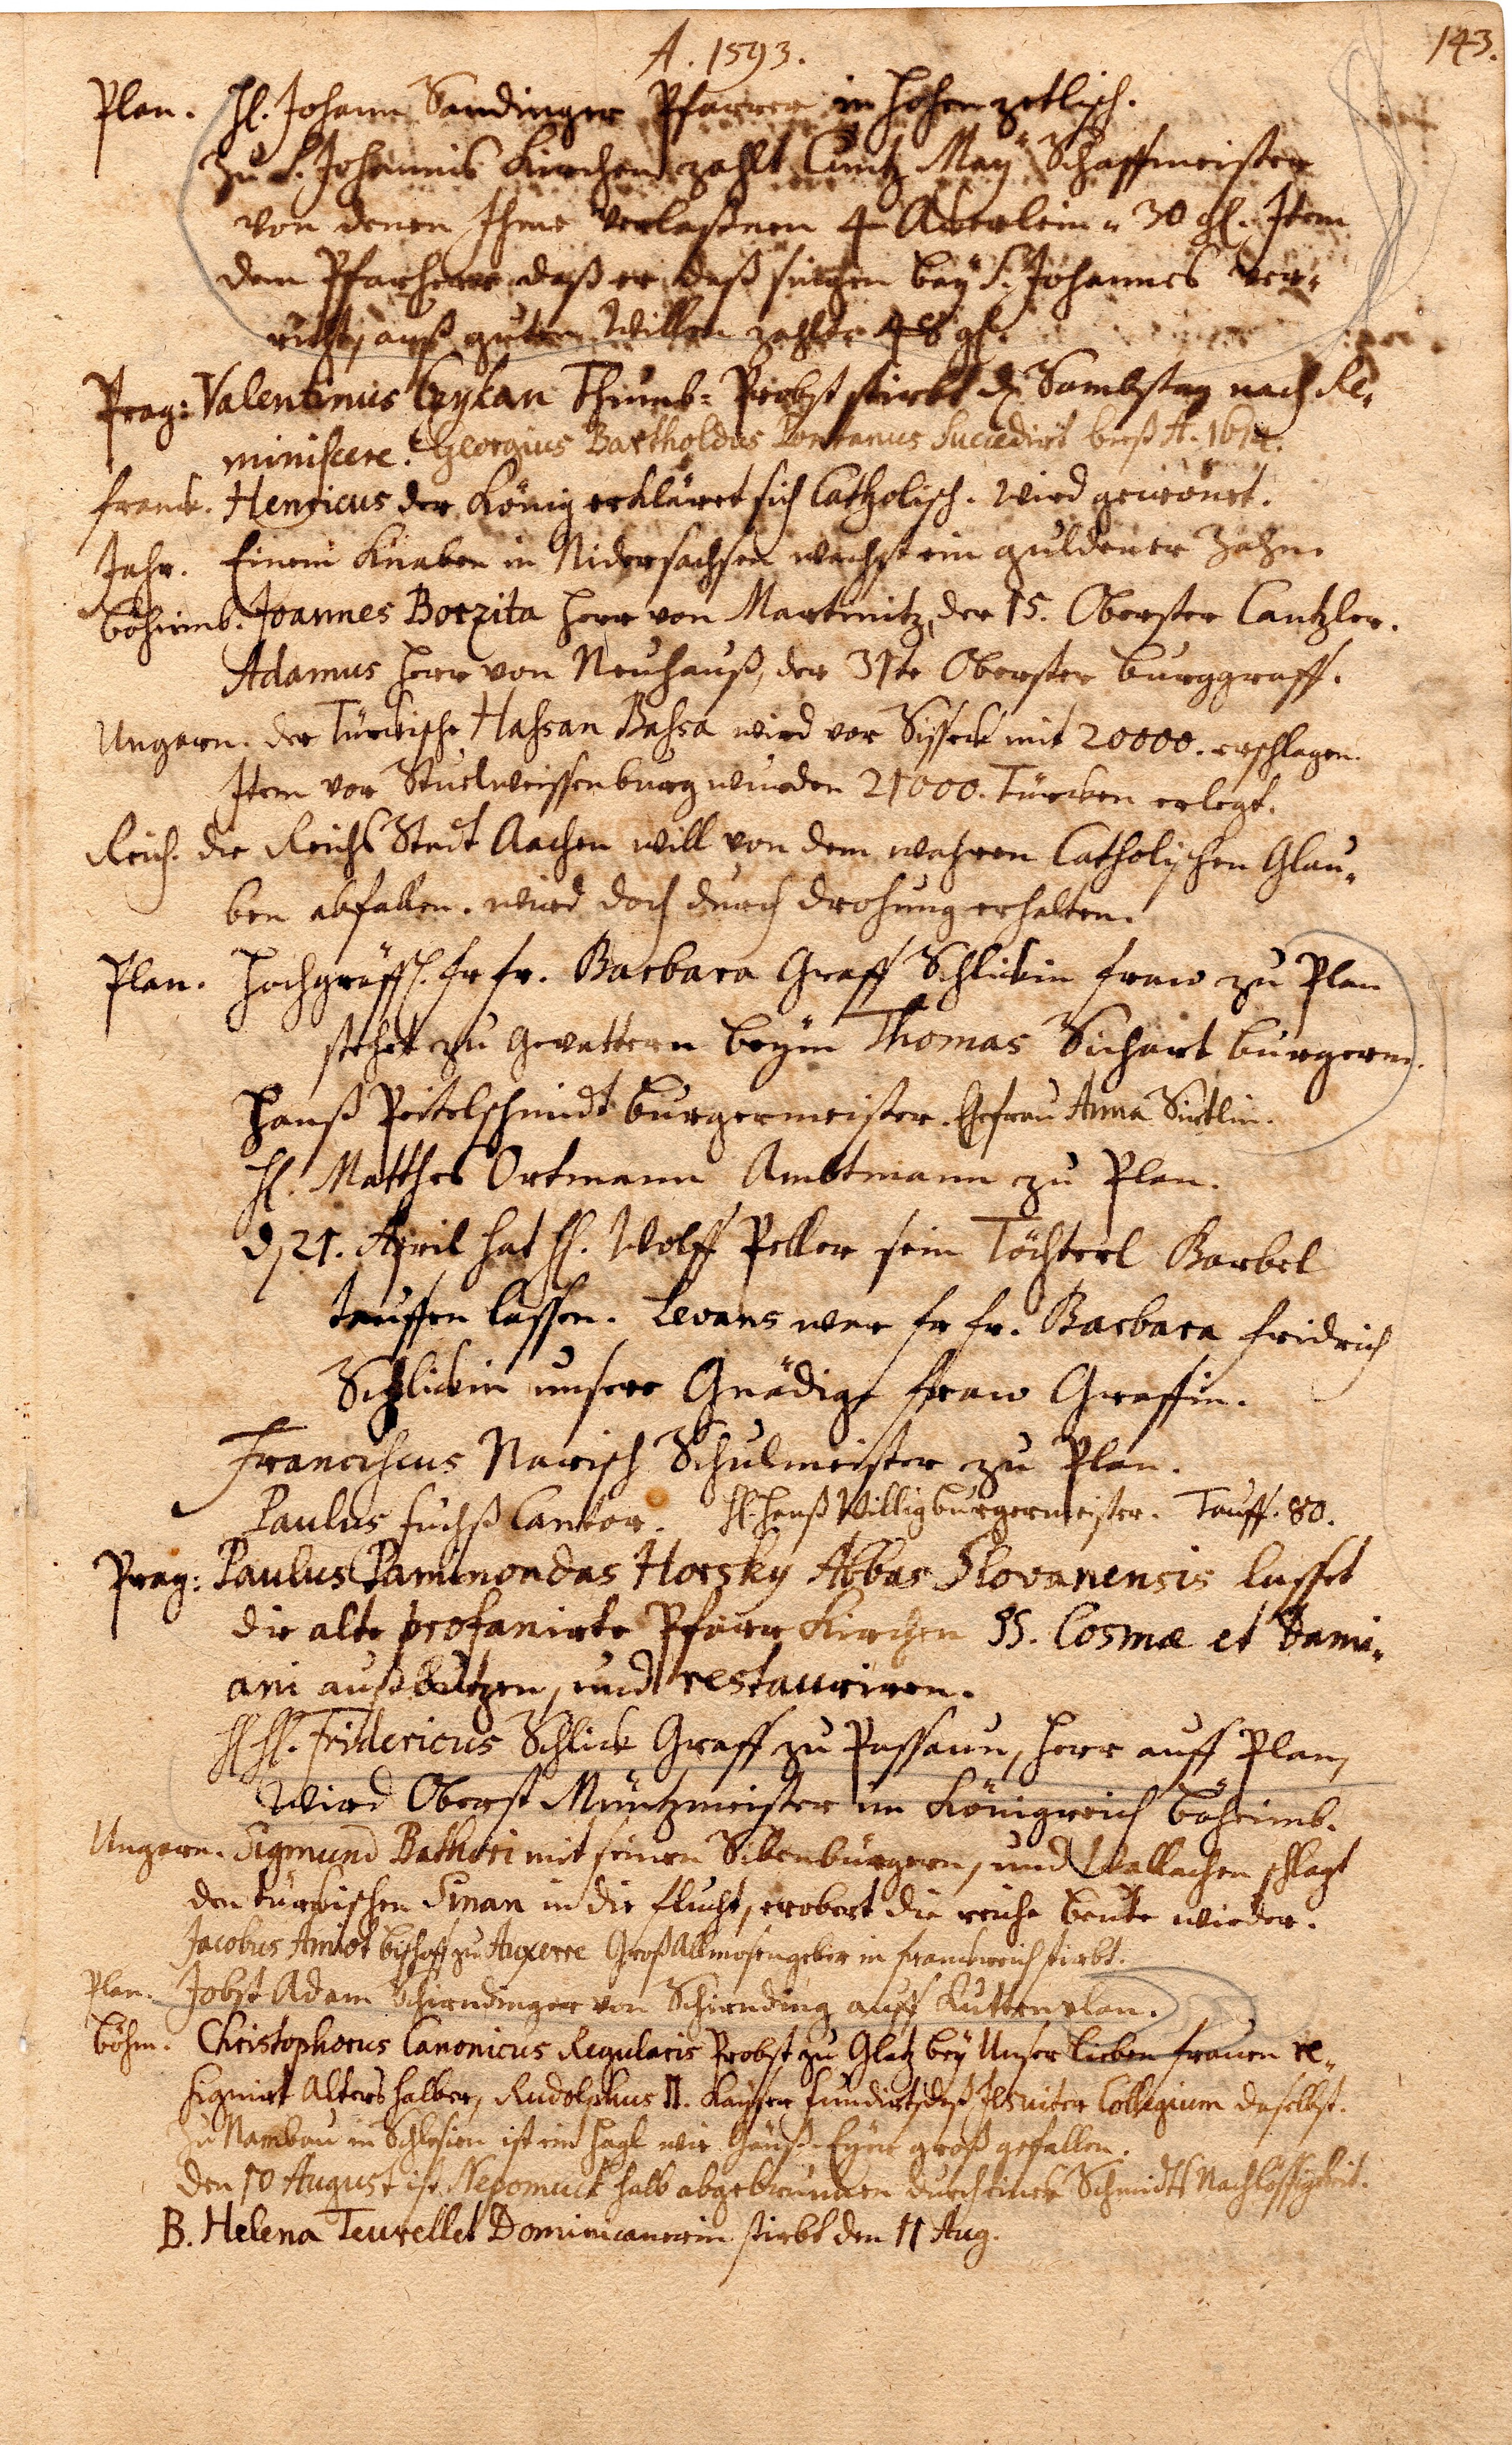 143.
A. 1593.
Plan. H. Johann Sandinger Pfarrer in Hohenzetlisch.
Zu S. Johannis Kirchen zahlt Cuntz May Schaffmeister
von denen Ihme verlaßenen 4 Äkerlein 30 gl. Item
dem Pfarherr daß er daß singen bey S. Johannes ver-
richt, auß guten Willen zahlt 48 gl.
Prag: Valentinus Thumb-Probst stirbt d. Sambstag nach Re-
miniscere. Georgius Bartholdus Pontanus Succedirt bieß A.
Franck. Henricus der König erkläret sich Catholisch. Wird gecrönet.
Jahr. Einem Knaben in Nidersachsen wachst ein guldener Zahn.
Böheimb. Joannes Borzita Herr von Martinitz, der 15. Oberster Cantzler.
Adamus Herr von Neuhauß, der 31te Oberster Burggraff.
Ungarn. der Türckische Hassan Bassa wird vor Sisseck mit 20000. erschlagen.
Item vor Stuelweissenburg wurden 21000. Türcken erlegt.
Reich. die Reichs Stadt Aachen will von dem wahren Catholischen Glau-
ben abfallen. wird doch durch drohung erhalten.
Plan. Hochgräffl. fr fr. Barbara Graff Schlickin fraw zu Plan
stehet zu Gevattern beym Thomas Sichart burgerm.
Hanß Peitelschmidt burgermeister. Ehefrau Anna
H. Matthes Ortmann Ambtmann zu Plan.
d. 21. April hat H. Wolff Peller sein Töchterl Barbel
tauffen lassen. Levans war fr fr. Barbara Fridrich
Schlickin unsere Gnädige fraw Graffin.
Franciscus Narisch Schulmeister zu Plan.
Paulus Fuchß Cantor. H. Hanß Willig burgermeister. Tauff. 80.
Prag: Paulus Paminondas Horsky Abbas Slovanensis lasset
die alte profanirte Pfarr Kirchen SS. Cosmæ et Dami-
ani außbutzen, und restauriren.
H H. Fridericus Schlick Graff zu Passaun, Herr auff Plan,
wird Oberst Müntzmeister im Königreich Böheimb.
Ungarn. Sigmund Bathori mit seinen Sibenbürgern, und Wallachen schlagt
den türkischen Sinan in die flucht, erobert die reiche beute wieder.
Jacobus Amiot bischoff zu Auxerre Groß Allmosengeber in franckreich stirbt.
Plan. Jobst Adam Schirndinger von Schirnding auff Kuttenplan.
Böhm. Christophorus Canonicus Regularis Probst zu Glatz bey Unser lieben frauen re-
signirt Alters halber, Rudolphus II. Kayser fundirt daß Jesuiter Collegium daselbst.
Zu in Schlesien ist ein Hagl wie Gänß-Eyer groß gefallen.
Den 10 August ist Nepomuck halb abgebrunnen durch eines Schmidts Nachlässigkeit.
B. Helena Dominicanerin stirbt den 11 Aug.